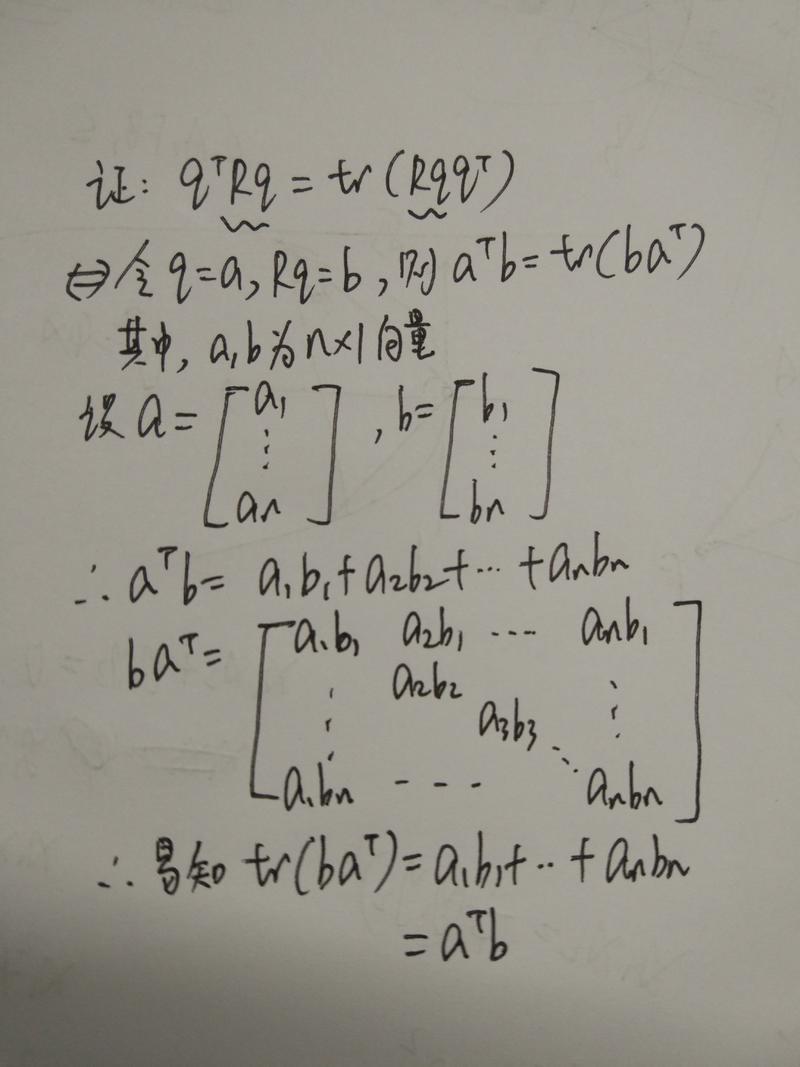 证: qᵀRq = tr(Rqqᵀ)
⇔ 令 q=a, Rq=b, 则 aᵀb=tr(baᵀ)
其中, a,b为n×1向量
设 a = [a₁ ⋮ aₙ], b= [b₁ ⋮ bₙ]
∴ aᵀb = a₁b₁+a₂b₂+⋯+aₙbₙ
baᵀ = [a₁b₁ a₂b₁ ⋯ aₙb₁
⋮ a₂b₂ ⋮
a₃b₃ ⋱
a₁bₙ - - - aₙbₙ]
∴ 易知 tr(baᵀ)=a₁b₁+⋯+aₙbₙ
=aᵀb